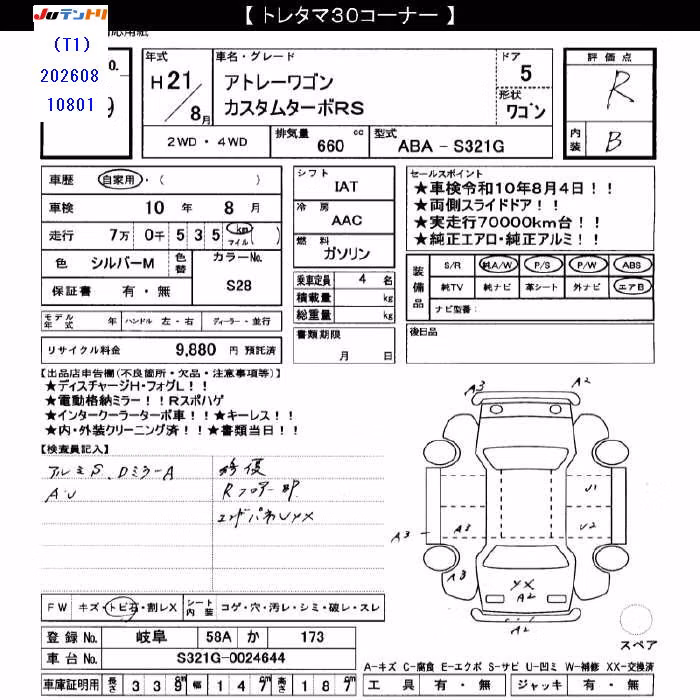 【 トレタマ30コーナー 】
JUテントリ
(T1)
202608
10801
年式
H21/8月
車名・グレード
アトレーワゴン
カスタムターボRS
ドア
5
形状
ワゴン
評価点
R
内装
B
2WD・4WD
排気量
660 cc
型式
ABA - S321G
車歴 自家用・( )
車検 10 年 8 月
走行 7万 0千 5 3 5 km マイル ( )
色 シルバーM 色替
カラーNo.
S28
保証書 有・無
シフト
IAT
冷房
AAC
燃料
ガソリン
乗車定員 4 名
積載量 kg
総重量 kg
書類期限
月 日
セールスポイント
★車検令和10年8月4日!!
★両側スライドドア!!
★実走行70000km台!!
★純正エアロ・純正アルミ!!
装備品
S/R 純A/W P/S P/W ABS
純TV 純ナビ 革シート 外ナビ エアB
ナビ型番:
後日品
モデル年式 年 ハンドル 左・右 ディーラー・並行
リサイクル料金 9,880 円 預託済
【出品店申告欄(不良箇所・欠品・注意事項等)】
★ディスチャージH・フォグL!!
★電動格納ミラー!!Rスポハゲ
★インタークーラーターボ車!!★キーレス!!
★内・外装クリーニング済!!★書類当日!!
【検査員記入】
アルミS、DミラーA
A・U
修復
Rフロアー部
エンドパネUYX
A3
A2
U1
A3
A3
U2
A3
YX
A2
A2
スペア
FW キズ・トビ石・割レX
シート内装 コゲ・穴・汚レ・シミ・破レ・スレ
登録 No. 岐阜 58A か 173
車台 No. S321G-0024644
車庫証明用 長さ 339cm 幅 147cm 高さ 187cm
A-キズ C-腐食 E-エクボ S-サビ U-凹ミ W-補修 XX-交換済
工具 有・無 ジャッキ 有・無